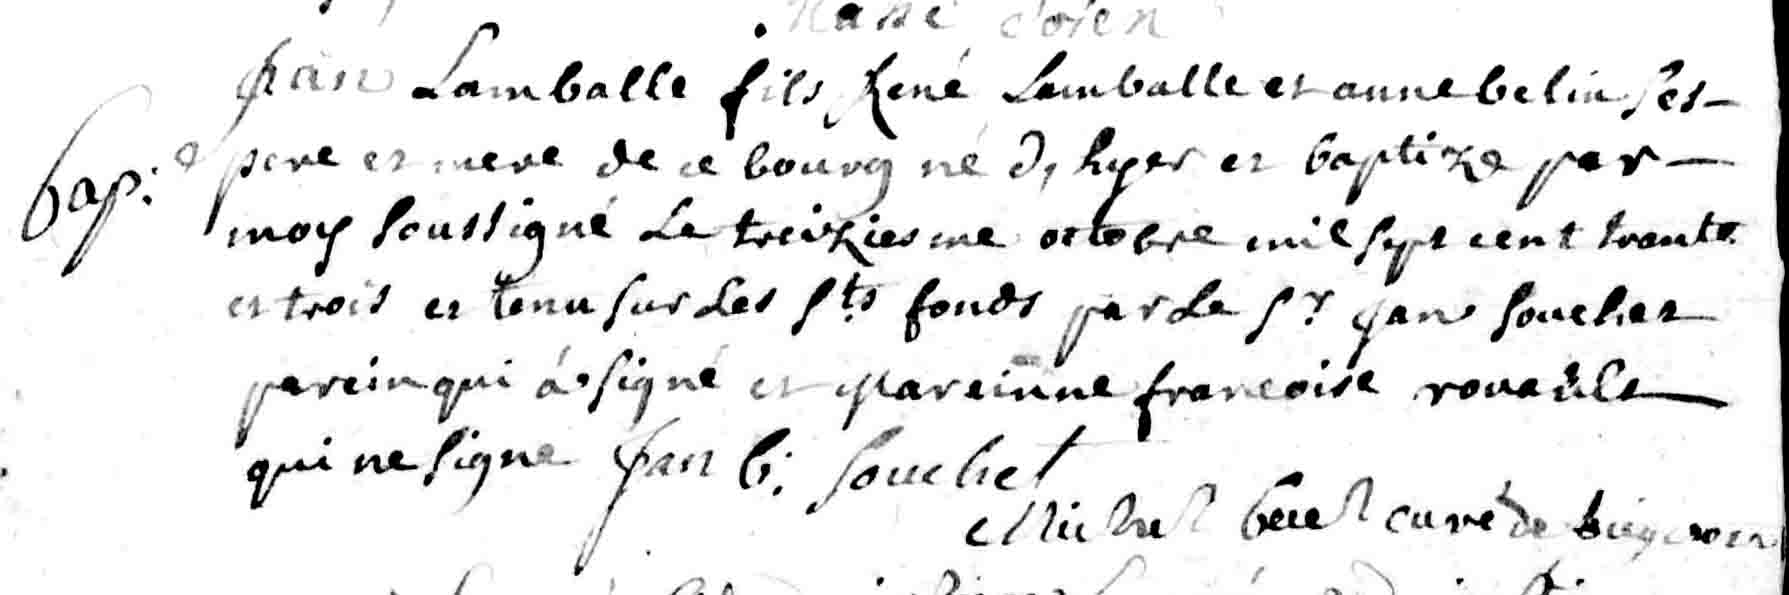 Jan Lamballe fils René Lamballe et anne belin ses
bap: pere et mere de ce bourg né d'hyer et baptize par
moy soussigné Le treiziesme octobre mil sept cent trante
et trois et tenu sur Les Sts fonds par Le Sr Jan Souchet
parein qui á signé et Mareinne francoise rouault
qui ne signe Jan b: Souchet
Michel curé de